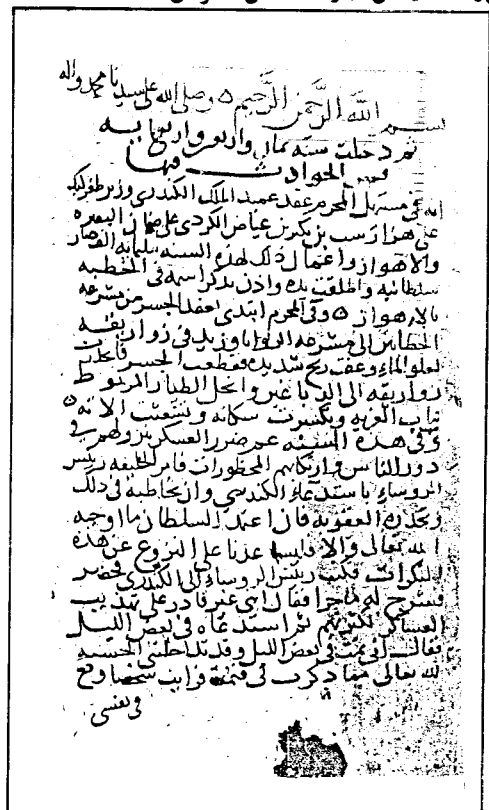 بسم الله الرحمن الرحيم وصلى الله على سيدنا محمد واله
ثم دخلت سنة ثمان واربعين واربعمايه
فمن الحوادث فيها
انه في مستهل المحرم عقد عميد الملك الكندري وزير طغرلبك
على هزارسب بن بنكير بن عياض الكردي على ضمان البصره
والاهواز واعمال ذلك لهذه السنه بثلثمايه الف دينار
سلطانيه واطلقت يده واذن بذكر اسمه في الخطبه
بالاهواز وفي المحرم ابتدي بعقد الجسر من مشرعه
الحطابين الى مشرعه الروايا وزيد في زواريقه
لعلو الماء وعقب ريح شديده فقطعت الجسر فانحدرت
زواريقه الى الدباغين وانحل الطيار المربوط
بباب الغربه وتكسرت سكانه وتشعثت الاته
وفي هذه السنه عم ضرر العسكر بنزولهم في
دور الناس وارتكابهم المحظورات فامر الخليفه رييس
الروساء باستدعاء الكندري وان يخاطبه في ذلك
ويحذره العقوبه فان اعتمد السلطان ما اوجبه
الله تعالى والا فليساعدنا على النزوح عن هذه
المنكرات فكتب رييس الروساء الى الكندري فحضر
فشرح له ما جرا فقال انني غير قادر على تهذيب
العساكر لكثرتهم ثم استدعاه في بعض الليل
فقال اني نمت في بعض الليل وقد تداخلتني الخشيه
لله تعالى مما ذكرت لي فنمت فرايت شخصا وقع
في نفسي